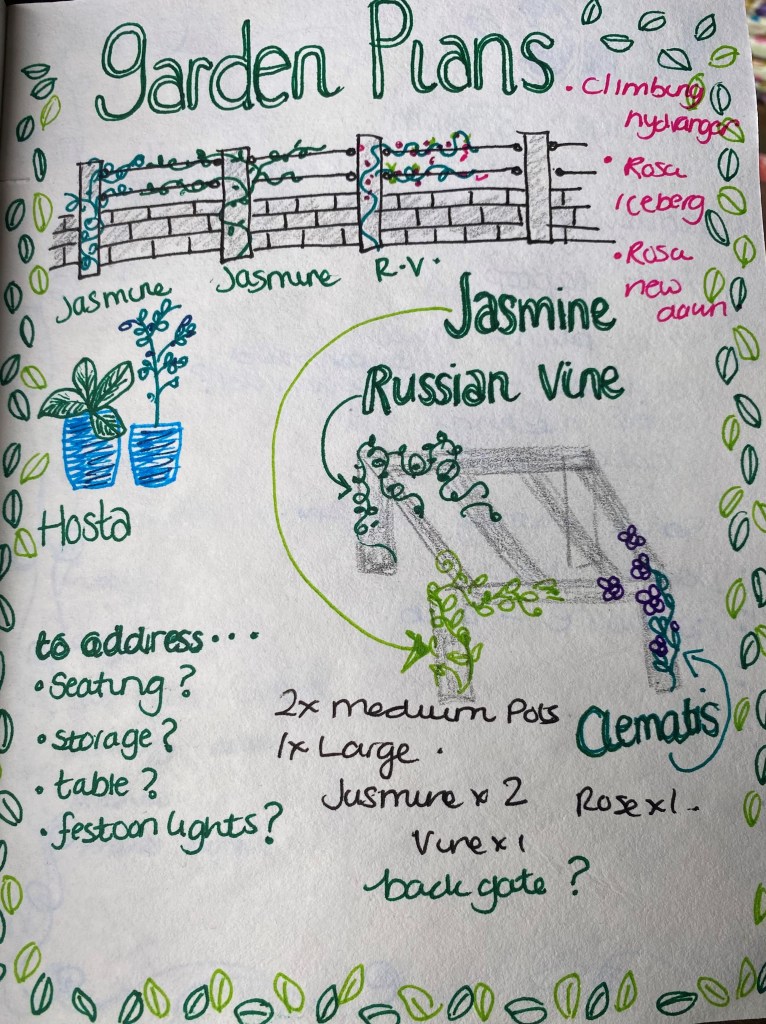 garden Plans
• Climbing
hydrangea
• Rosa
iceberg
• Rosa
new
dawn
Jasmine
Jasmine
R.V.
Jasmine
Russian Vine
Hosta
to address...
• Seating?
• storage?
• table?
• festoon lights?
2x medium Pots
1x Large .
Jasmine x 2
Vine x 1
back gate ?
Clematis
Rose x 1.